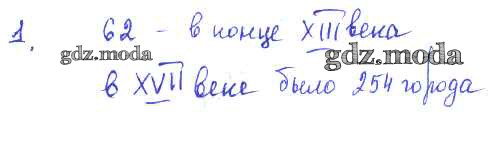 1. 62 - в конце XIII века
gdz.moda gdz.moda
в XVII веке было 254 города